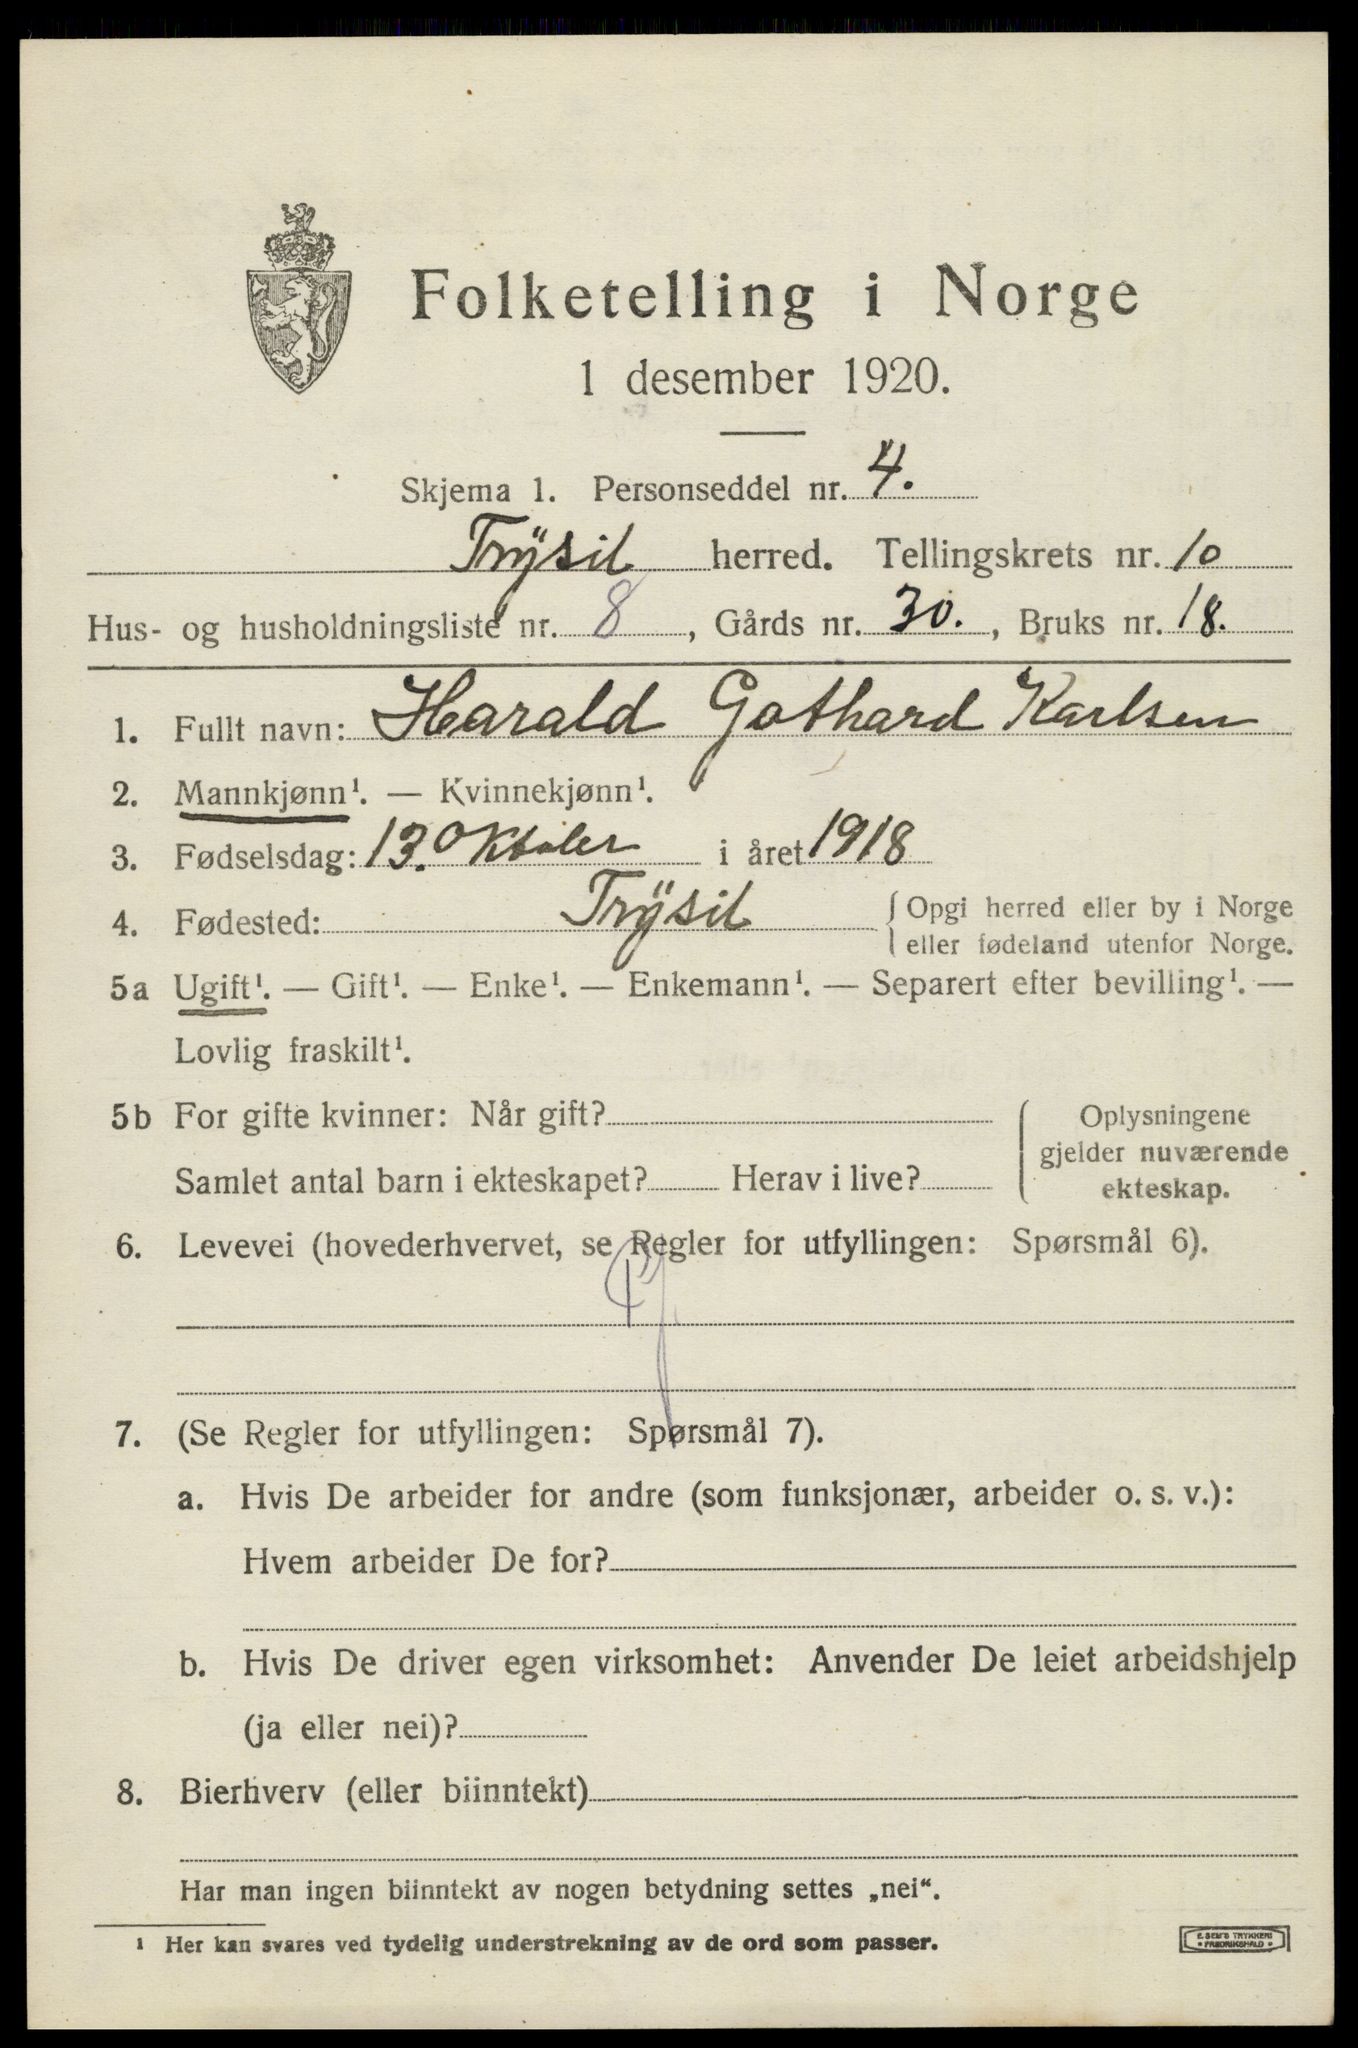 Folketelling i Norge
1 desember 1920.
Skjema 1. Personseddel nr. 4.
Trÿsil herred. Tellingskrets nr. 10
Hus- og husholdningsliste nr. 8, Gårds nr. 30., Bruks nr. 18.
1. Fullt navn: Harald Gothard Karlsen
2. Mannkjønn¹. — Kvinnekjønn¹.
3. Fødselsdag: 13. Oktober i året 1918
4. Fødested: Trÿsil { Opgi herred eller by i Norge
eller fødeland utenfor Norge.
5a Ugift¹. — Gift¹. — Enke¹. — Enkemann¹. — Separert efter bevilling¹. —
Lovlig fraskilt¹.
5b For gifte kvinner: Når gift?
Samlet antal barn i ekteskapet? Herav i live?
Oplysningene
gjelder nuværende
ekteskap.
6. Levevei (hovederhvervet, se Regler for utfyllingen: Spørsmål 6).
7. (Se Regler for utfyllingen: Spørsmål 7).
a. Hvis De arbeider for andre (som funksjonær, arbeider o. s. v.):
Hvem arbeider De for?
b. Hvis De driver egen virksomhet: Anvender De leiet arbeidshjelp
(ja eller nei)?
8. Bierhverv (eller biinntekt)
Har man ingen biinntekt av nogen betydning settes „nei“.
¹ Her kan svares ved tydelig understrekning av de ord som passer.
E. SEM'S TRYKKERI
• FREDRIKSHALD •